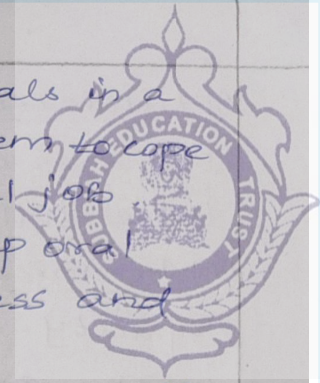 als in a
em to cope
l job
p oral
ess and
EDUCATION TRUST